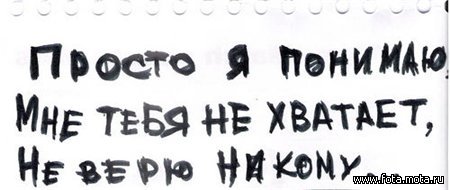 Просто я понимаю
Мне тебя не хватает,
Не верю никому.
www.fota.mota.ru